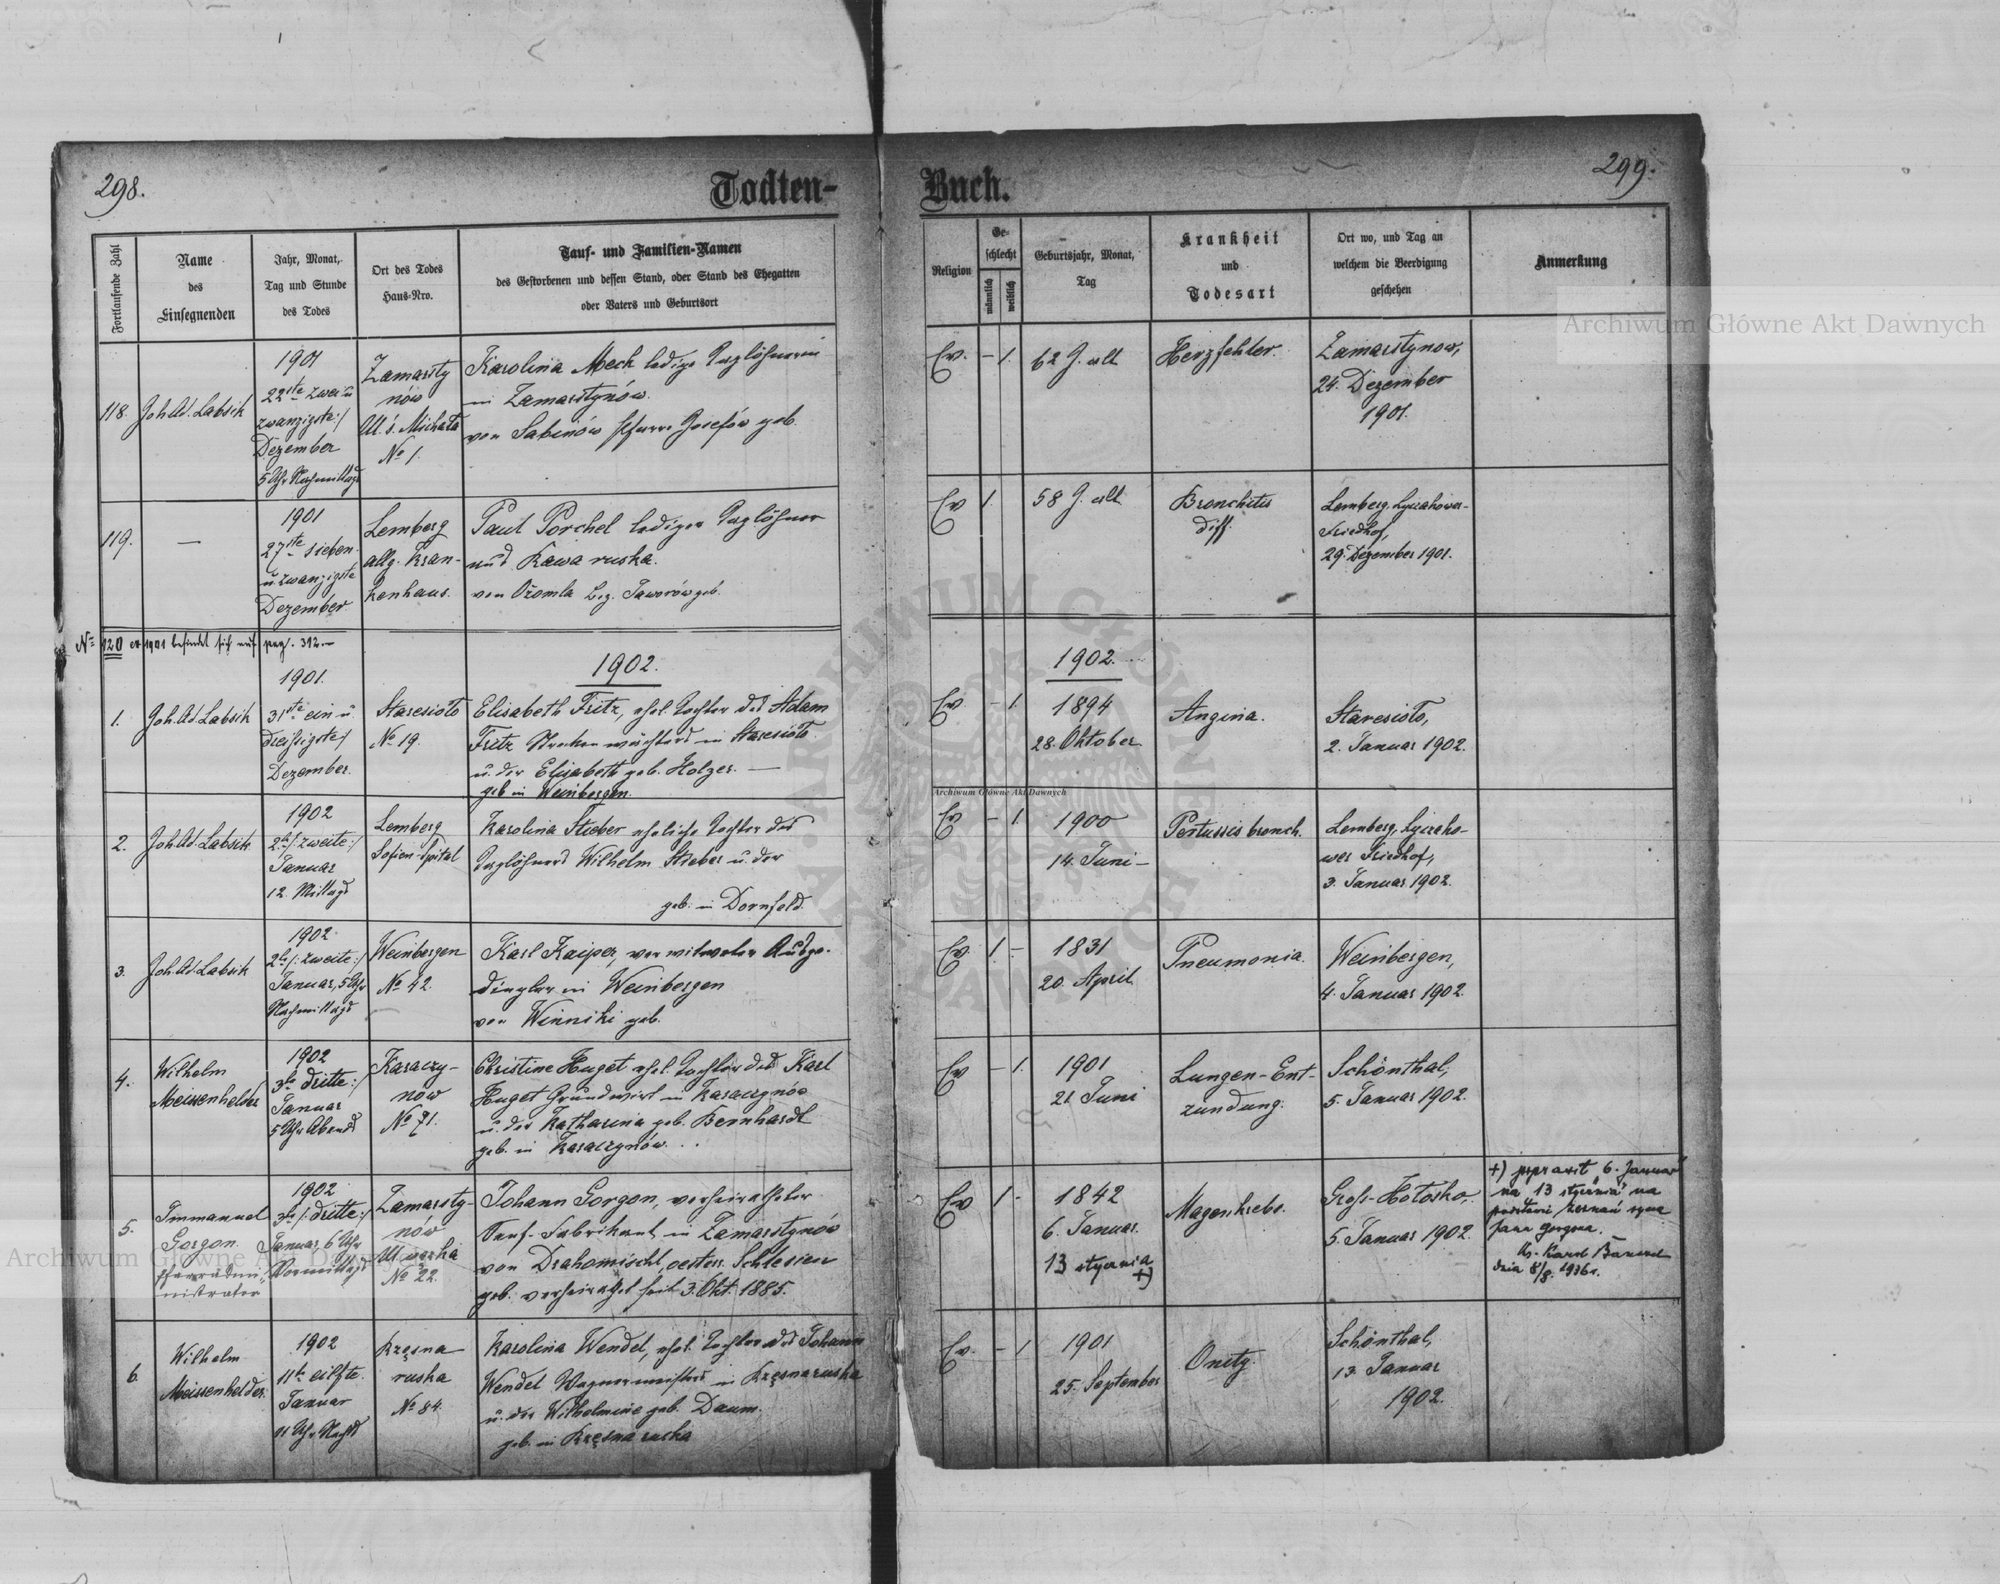 298.
Todten-
Fortlaufende Zahl
Name
des
Einsegnenden
Jahr, Monat,
Tag und Stunde
des Todes
Ort des Todes
Haus-Nro.
Tauf- und Familien-Namen
des Gestorbenen und dessen Stand, oder Stand des Ehegatten
oder Vaters und Geburtsort
118.
Joh. Ad. Labsik
1901
22ste zwei u
zwanzigste:/
Dezember
5 Uhr Nachmittags
Zamarsty
nów
Ul. ś. Michała
No 1.
Karolina Mech ledige Taglöhnerin
in Zamarstynów.
von Sabinów Pfarre Josefów geb.
119.
—
1901
27ste sieben
u. zwanzigste
Dezember
Lemberg
allg. Kran-
kenhaus.
Paul Porchel lediger Taglöhner
aus Rawa ruska.
von Ożomla Bez. Jaworów geb.
No 120 ex 1901 befindet sich auf pag. 312.—
1902.
1.
Joh. Ad. Labsik
1901.
31ste ein u.
dreissigste/
Dezember.
Staresioło
No 19.
Elisabeth Fritz, ehel. Tochter des Adam
Fritz Streckenwächters in Staresioło
u. der Elisabeth geb. Holzer. —
geb. in Weinbergen.
2.
Joh. Ad. Labsik
1902
2te /: zweite:/
Januar
12. Mittags
Lemberg
Sofien-Spital
Karolina Stieber eheliche Tochter des
Taglöhners Wilhelm Stieber u. der
geb. in Dornfeld.
3.
Joh. Ad. Labsik
1902.
2te /: zweite:/
Januar, 5 Uhr
Nachmittags
Weinbergen
No 42.
Karl Kaiper, verwitweter Ausge-
dingler in Weinbergen
von Winniki geb.
4.
Wilhelm
Meissenhelder
1902
3te dritte:/
Januar
5 Uhr Abends
Karaczy-
nów
No 71.
Christine Huget ehel. Tochter des Karl
Huget Grundwirt in Karaczynów
u. der Katharina geb. Bernhardt
geb. in Karaczynów.
5.
Immanuel
Gorgon.
Pfarradmi-
nistrator
1902
3te /: dritte:/
Januar, 6 Uhr
Vormittags
Zamarsty-
nów
No 22.
Johann Gorgon, verheiratheter
Senf-Fabrikant in Zamarstynów
von Drahomischl, oesterr. Schlesien
geb. verheiratet seit 3. Okt. 1885.
6.
Wilhelm
Meissenhelder.
1902
11te eilfte.
Januar
11 Uhr Nachts
Rzęsna
ruska
No 84.
Karolina Wendel, ehel. Tochter des Johann
Wendel Wagnermeisters in Rzęsna ruska
u. der Wilhelmine geb. Daum.
geb. in Rzęsna ruska
Buch.
299.
Religion
Ge-
schlecht
männlich
weiblich
Geburtsjahr, Monat,
Tag
Krankheit
und
Todesart
Ort wo, und Tag an
welchem die Beerdigung
geschehen
Anmerkung
Ev. – 1.
62 J. alt
Herzfehler.
Zamarstynow,
24. Dezember
1901.
Ev 1.
58 J. alt
Bronchitis
diff.
Lemberg, Lyczakower-
Friedhof,
29. Dezember 1901.
1902.
Ev – 1.
1894
28. Oktober
Angina.
Staresioło,
2. Januar 1902.
Ev – 1.
1900
14. Juni –
Pertussis bronch.
Lemberg, Lyczako-
wer Friedhof,
3. Januar 1902.
Ev. 1. –
1831
20. April
Pneumonia.
Weinbergen,
4. Januar 1902.
Ev – 1.
1901
21 Juni
Lungen-Ent-
zündung.
Schönthal,
5. Januar 1902.
Ev 1 –
1842
6. Januar.
13 stycznia
+)
Magenkrebs.
Gross-Hołosko,
5. Januar 1902.
+) poprawił "6. Januar"
na "13 stycznia" na
podstawie zeznań syna
Jana Gorgona.
dnia 8/8. 1936 r.
Ev. – 1
1901
25. September
Schönthal,
13. Januar
1902.
Archiwum Główne Akt Dawnych
Archiwum Główne Akt Dawnych
Archiwum Główne Akt Dawnych